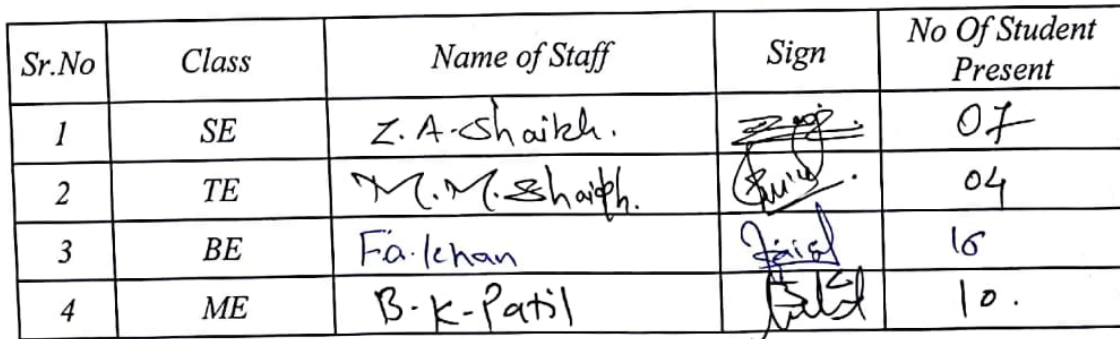 Sr.No Class Name of Staff Sign No Of Student Present
1 SE Z.A.Shaikh. 07
2 TE M.M.Shaikh. 04
3 BE Fa.khan Faisal 16
4 ME B.K.Patil 10.